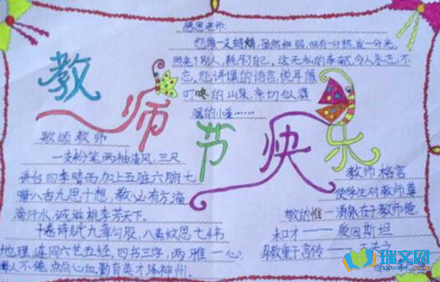 感恩老师:
您像一支蜡烛,虽然细弱,但有一分热,发一分光,
照亮了别人,耗尽了自己。这无私的奉献,令人永志不
忘。您讲课的语言,悦耳像
叮咚的山泉,亲切似潺
潺的小溪……
教师节快乐
歌颂教师
一支粉笔两袖清风,三尺
讲台四季晴雨加上五脏六腑七
嘴八舌九思十想,教必有方滴
滴汗水,诚滋桃李芳天下。
十卷诗赋九章勾股,八索文思七纬
地理,连同六艺五经,四书三字,两雅一心,
诲人不倦,点点心血,勤育英才泽神州。
教师格言
使学生对教师尊
敬的惟一源泉在于教师的德
和才——爱因斯坦
身教重于言传
瑞文网